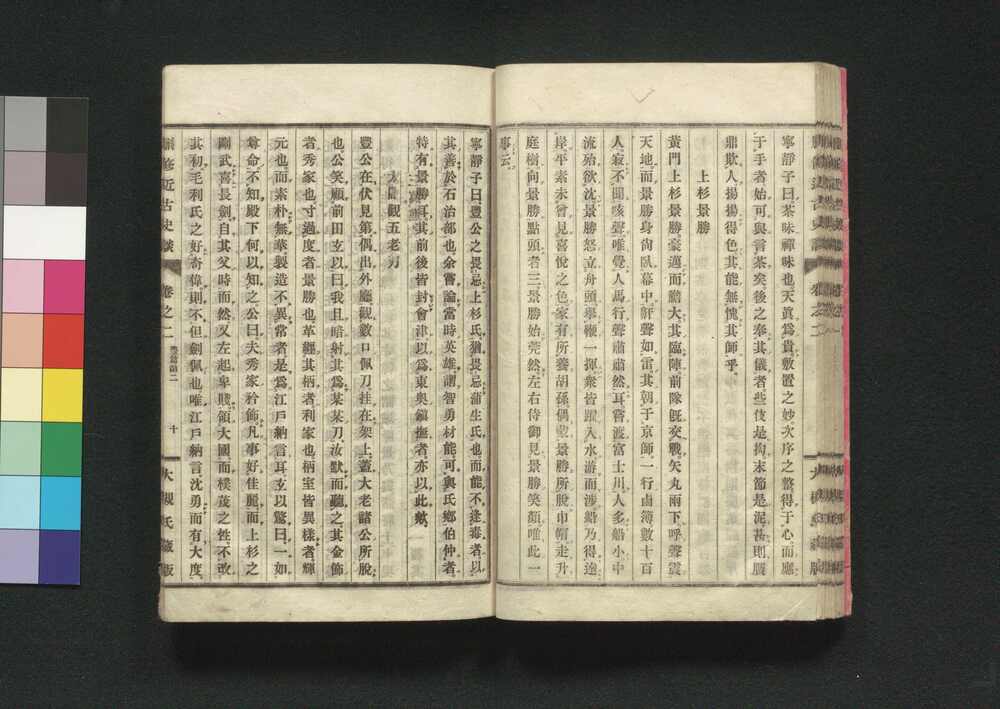 寧靜子曰茶味禪味也天眞爲貴敷置之妙次序之整得于心而應
于手者始可與言茶矣後之奉其儀者些伎是拘末節是泥甚則贋
鼎欺人揚揚得色其能無愧其師乎
上杉景勝
黃門上杉景勝豪邁而膽大其臨陣前隊旣交戰矢丸雨下呼聲震
天地而景勝身尙臥幕中鼾聲如雷其朝于京師一行鹵簿數十百
人寂不聞咳聲唯覺人馬行聲肅肅然耳嘗渡富士川人多船小中
流殆欲沈景勝怒立舟頭擧鞭一揮衆皆跳入水游而涉船乃得達
岸平素未嘗見喜悅之色家有所養胡孫偶取景勝所脫巾帽走升
庭樹向景勝點頭者三景勝始莞然左右侍御見景勝笑顏唯此一
事云
寧靜子曰豐公之畏忌上杉氏猶畏忌蒲生氏也而能不逢毒者以
其善於石治部也余嘗論當時英雄謂智勇材能可與氏鄕伯仲者
特有景勝耳其前後皆封會津以爲東奧鎭撫者亦以此歟
太閤觀五老刀
豐公在伏見第偶出外廳觀數口佩刀挂在架上蓋大老諸公所脫
也公笑顧前田玄以曰我且暗射其爲某某刀汝默而聽之其金飾
者秀家也寸過度者景勝也革纏其柄者利家也柄室皆異樣者輝
元也而素朴無華製造不異常者是爲江戶納言耳玄以驚曰一如
尊命不知殿下何以知之公曰夫秀家矜飾凡事好佳麗而上杉之
剛武喜長劍自其父時而然又左起卑賤領大國而樸茂之性不改
其初毛利氏之好奇偉則不但劍佩也唯江戶納言沈勇而有大度
近古史談
卷之二
豐篇第二
十
大槻氏藏版